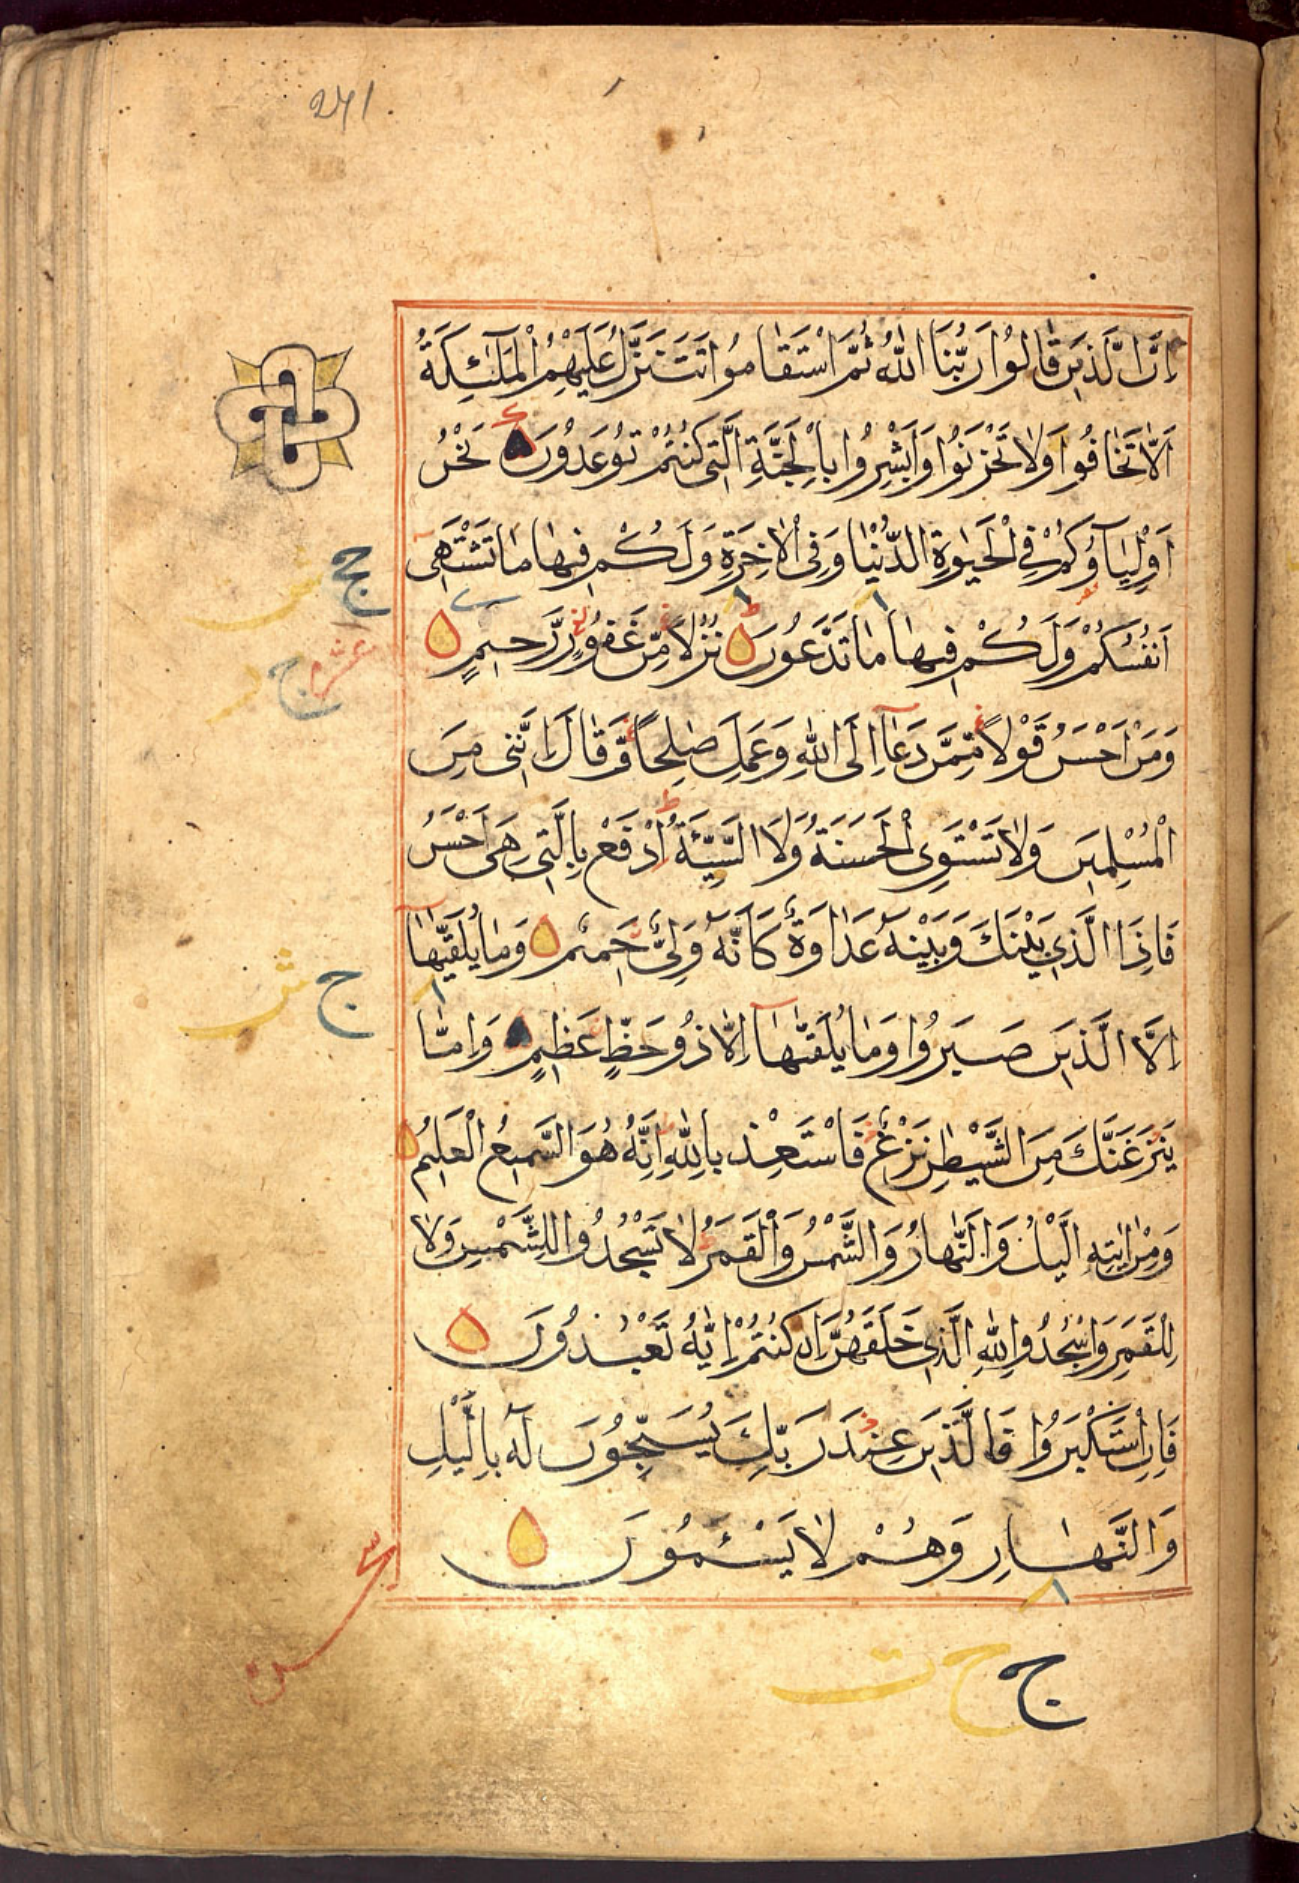 241.
اِنَّ الَّذِينَ قَالُوا رَبُّنَا اللّٰهُ ثُمَّ اسْتَقَامُوا تَتَنَزَّلُ عَلَيْهِمُ الْمَلٰٓئِكَةُ
اَلَّا تَخَافُوا وَلَا تَحْزَنُوا وَاَبْشِرُوا بِالْجَنَّةِ الَّتِي كُنْتُمْ تُوعَدُونَ نَحْنُ
اَوْلِيَاؤُكُمْ فِي الْحَيٰوةِ الدُّنْيَا وَفِي الْاٰخِرَةِ وَلَكُمْ فِيهَا مَا تَشْتَهِي
اَنْفُسُكُمْ وَلَكُمْ فِيهَا مَا تَدَّعُونَ نُزُلًا مِّنْ غَفُورٍ رَّحِيمٍ
وَمَنْ اَحْسَنُ قَوْلًا مِّمَّنْ دَعَآ اِلَى اللّٰهِ وَعَمِلَ صٰلِحًا وَّقَالَ اِنَّنِي مِنَ
الْمُسْلِمِينَ وَلَا تَسْتَوِي الْحَسَنَةُ وَلَا السَّيِّئَةُ اِدْفَعْ بِالَّتِي هِيَ اَحْسَنُ
فَاِذَا الَّذِي بَيْنَكَ وَبَيْنَهُ عَدَاوَةٌ كَاَنَّهُ وَلِيٌّ حَمِيمٌ وَمَا يُلَقّٰيهَا
اِلَّا الَّذِينَ صَبَرُوا وَمَا يُلَقّٰىهَآ اِلَّا ذُو حَظٍّ عَظِيمٍ وَاِمَّا
يَنْزَغَنَّكَ مِنَ الشَّيْطٰنِ نَزْغٌ فَاسْتَعِذْ بِاللّٰهِ اِنَّهُ هُوَ السَّمِيعُ الْعَلِيمُ
وَمِنْ اٰيٰتِهِ الَّيْلُ وَالنَّهَارُ وَالشَّمْسُ وَالْقَمَرُ لَا تَسْجُدُوا لِلشَّمْسِ وَلَا
لِلْقَمَرِ وَاسْجُدُوا لِلّٰهِ الَّذِي خَلَقَهُنَّ اِنْ كُنْتُمْ اِيَّاهُ تَعْبُدُونَ
فَاِنِ اسْتَكْبَرُوا فَالَّذِينَ عِنْدَ رَبِّكَ يُسَبِّحُونَ لَهُ بِالَّيْلِ
وَالنَّهَارِ وَهُمْ لَا يَسْئَمُونَ
ج ش
عشر
ج
ج ش
ج ح ت